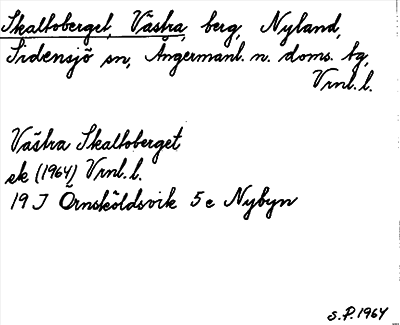 Skalloberget, Västra, berg, Nyland,
Sidensjö sn, Ångermanl. n. doms. tg,
Vrnl. l.
Västra Skalloberget
ek (1964) Vrnl. l.
19 J Örnsköldsvik 5 e Nybyn
S.P. 1964